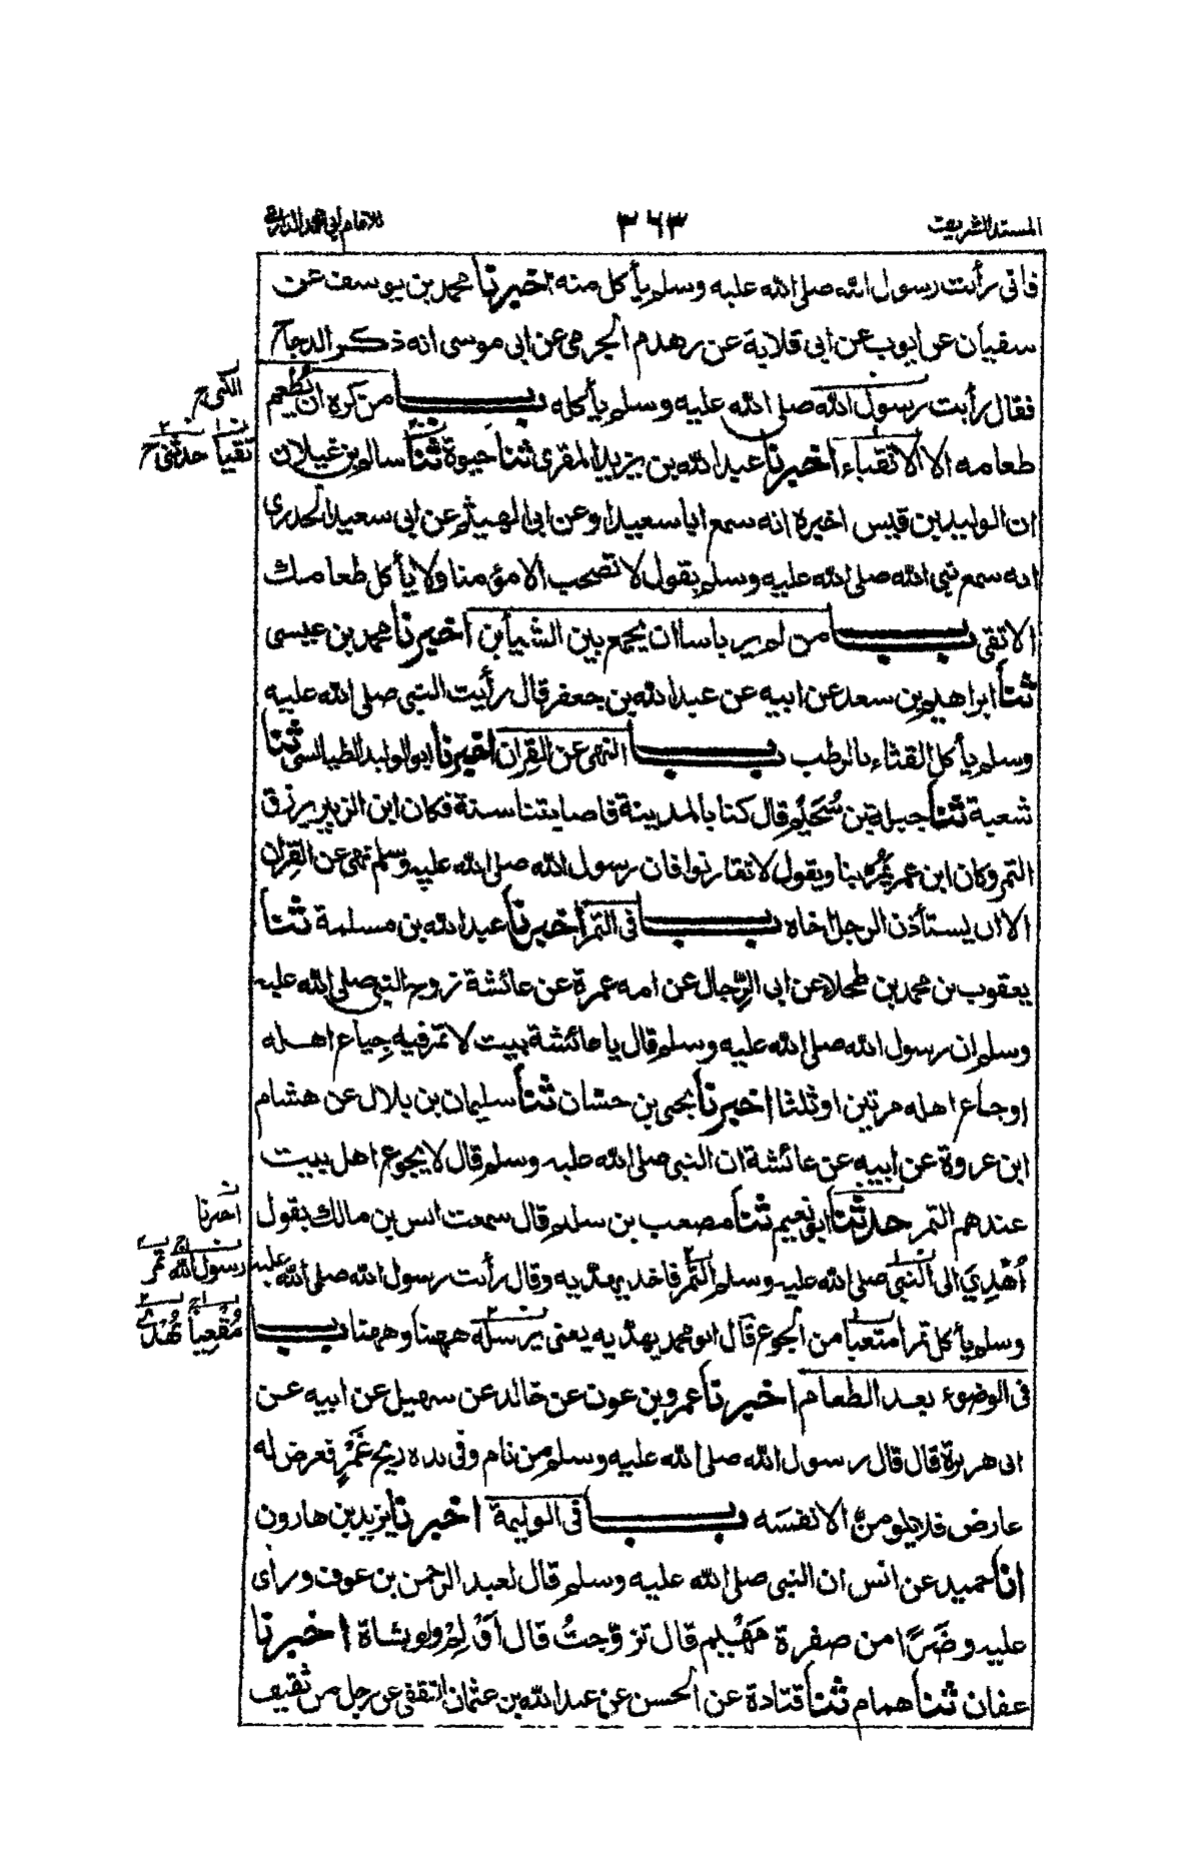 المسند الشريف
٣٦٣
للامام ابي محمد الدارمي
فاني رأيت رسول الله صلى الله عليه وسلم يأكل منه اخبرنا محمد بن يوسف عن
سفيان عن ايوب عن ابي قلابة عن زهدم الجرمي عن ابي موسى انه ذكر الدجاج
فقال رأيت رسول الله صلى الله عليه وسلم يأكله باب من كره ان يُطعِم
طعامه الا الاتقياء اخبرنا عبد الله بن يزيد المقرى ثنا حيوة ثنا سالم بن غيلان
ان الوليد بن قيس اخبره انه سمع ابا سعيد او عن ابي الهيثم عن ابي سعيد الخدري
انه سمع نبي الله صلى الله عليه وسلم يقول لا تصحب الا مؤمنا ولا يأكل طعامك
الا تقي باب من لم ير باسا ان يجمع بين الشيأين اخبرنا محمد بن عيسى
ثنا ابراهيم بن سعد عن ابيه عن عبد الله بن جعفر قال رأيت النبي صلى الله عليه
وسلم يأكل القثاء بالرطب باب النهي عن القِران اخبرنا ابو الوليد الطيالسي ثنا
شعبة ثنا جبلة بن سُحَيْم قال كنا بالمدينة فاصابتنا سنة فكان ابن الزبير يرزق
التمر وكان ابن عمر يَمُرُّ بنا ويقول لا تقارنوا فان رسول الله صلى الله عليه وسلم نهى عن القِران
الا ان يستأذن الرجل اخاه باب في التمر اخبرنا عبد الله بن مسلمة ثنا
يعقوب بن محمد بن طحلاء عن ابي الرِّجال عن امه عمرة عن عائشة زوج النبي صلى الله عليه
وسلم ان رسول الله صلى الله عليه وسلم قال يا عائشة بيت لا تمر فيه جِياع اهله
او جاع اهله مرتين او ثلثا اخبرنا يحيى بن حسّان ثنا سليمان بن بلال عن هشام
ابن عروة عن ابيه عن عائشة ان النبي صلى الله عليه وسلم قال لا يجوع اهل بيت
عندهم التمر حدثنا ابو نعيم ثنا مصعب بن سليم قال سمعت انس بن مالك يقول
اُهْدِيَ الى النبي صلى الله عليه وسلم التمر فاخذ يهدّيه وقال رأيت رسول الله صلى الله عليه
وسلم يأكل تمرا متعبا من الجوع قال ابو محمد يهدّيه يعني يرسله ههنا وههنا باب
في الوضوء بعد الطعام اخبرنا عمرو بن عون عن خالد عن سهيل عن ابيه عن
ابي هريرة قال قال رسول الله صلى الله عليه وسلم من نام وفي يده ريح غَمَرٍ فعرض له
عارض فلا يلومنّ الا نفسَه باب في الوليمة اخبرنا يزيد بن هارون
انا حميد عن انس ان النبي صلى الله عليه وسلم قال لعبد الرحمن بن عوف وراى
عليه وضَرًا من صفرة مَهْيَم قال تزوّجتُ قال اَوْلِمْ ولو بشاة اخبرنا
عفان ثنا همام ثنا قتادة عن الحسن عن عبد الله بن عثمان الثقفي عن رجل من ثقيف
تقيا حدثني
اخبرنا
رسول الله تمر
مُقْعِياً